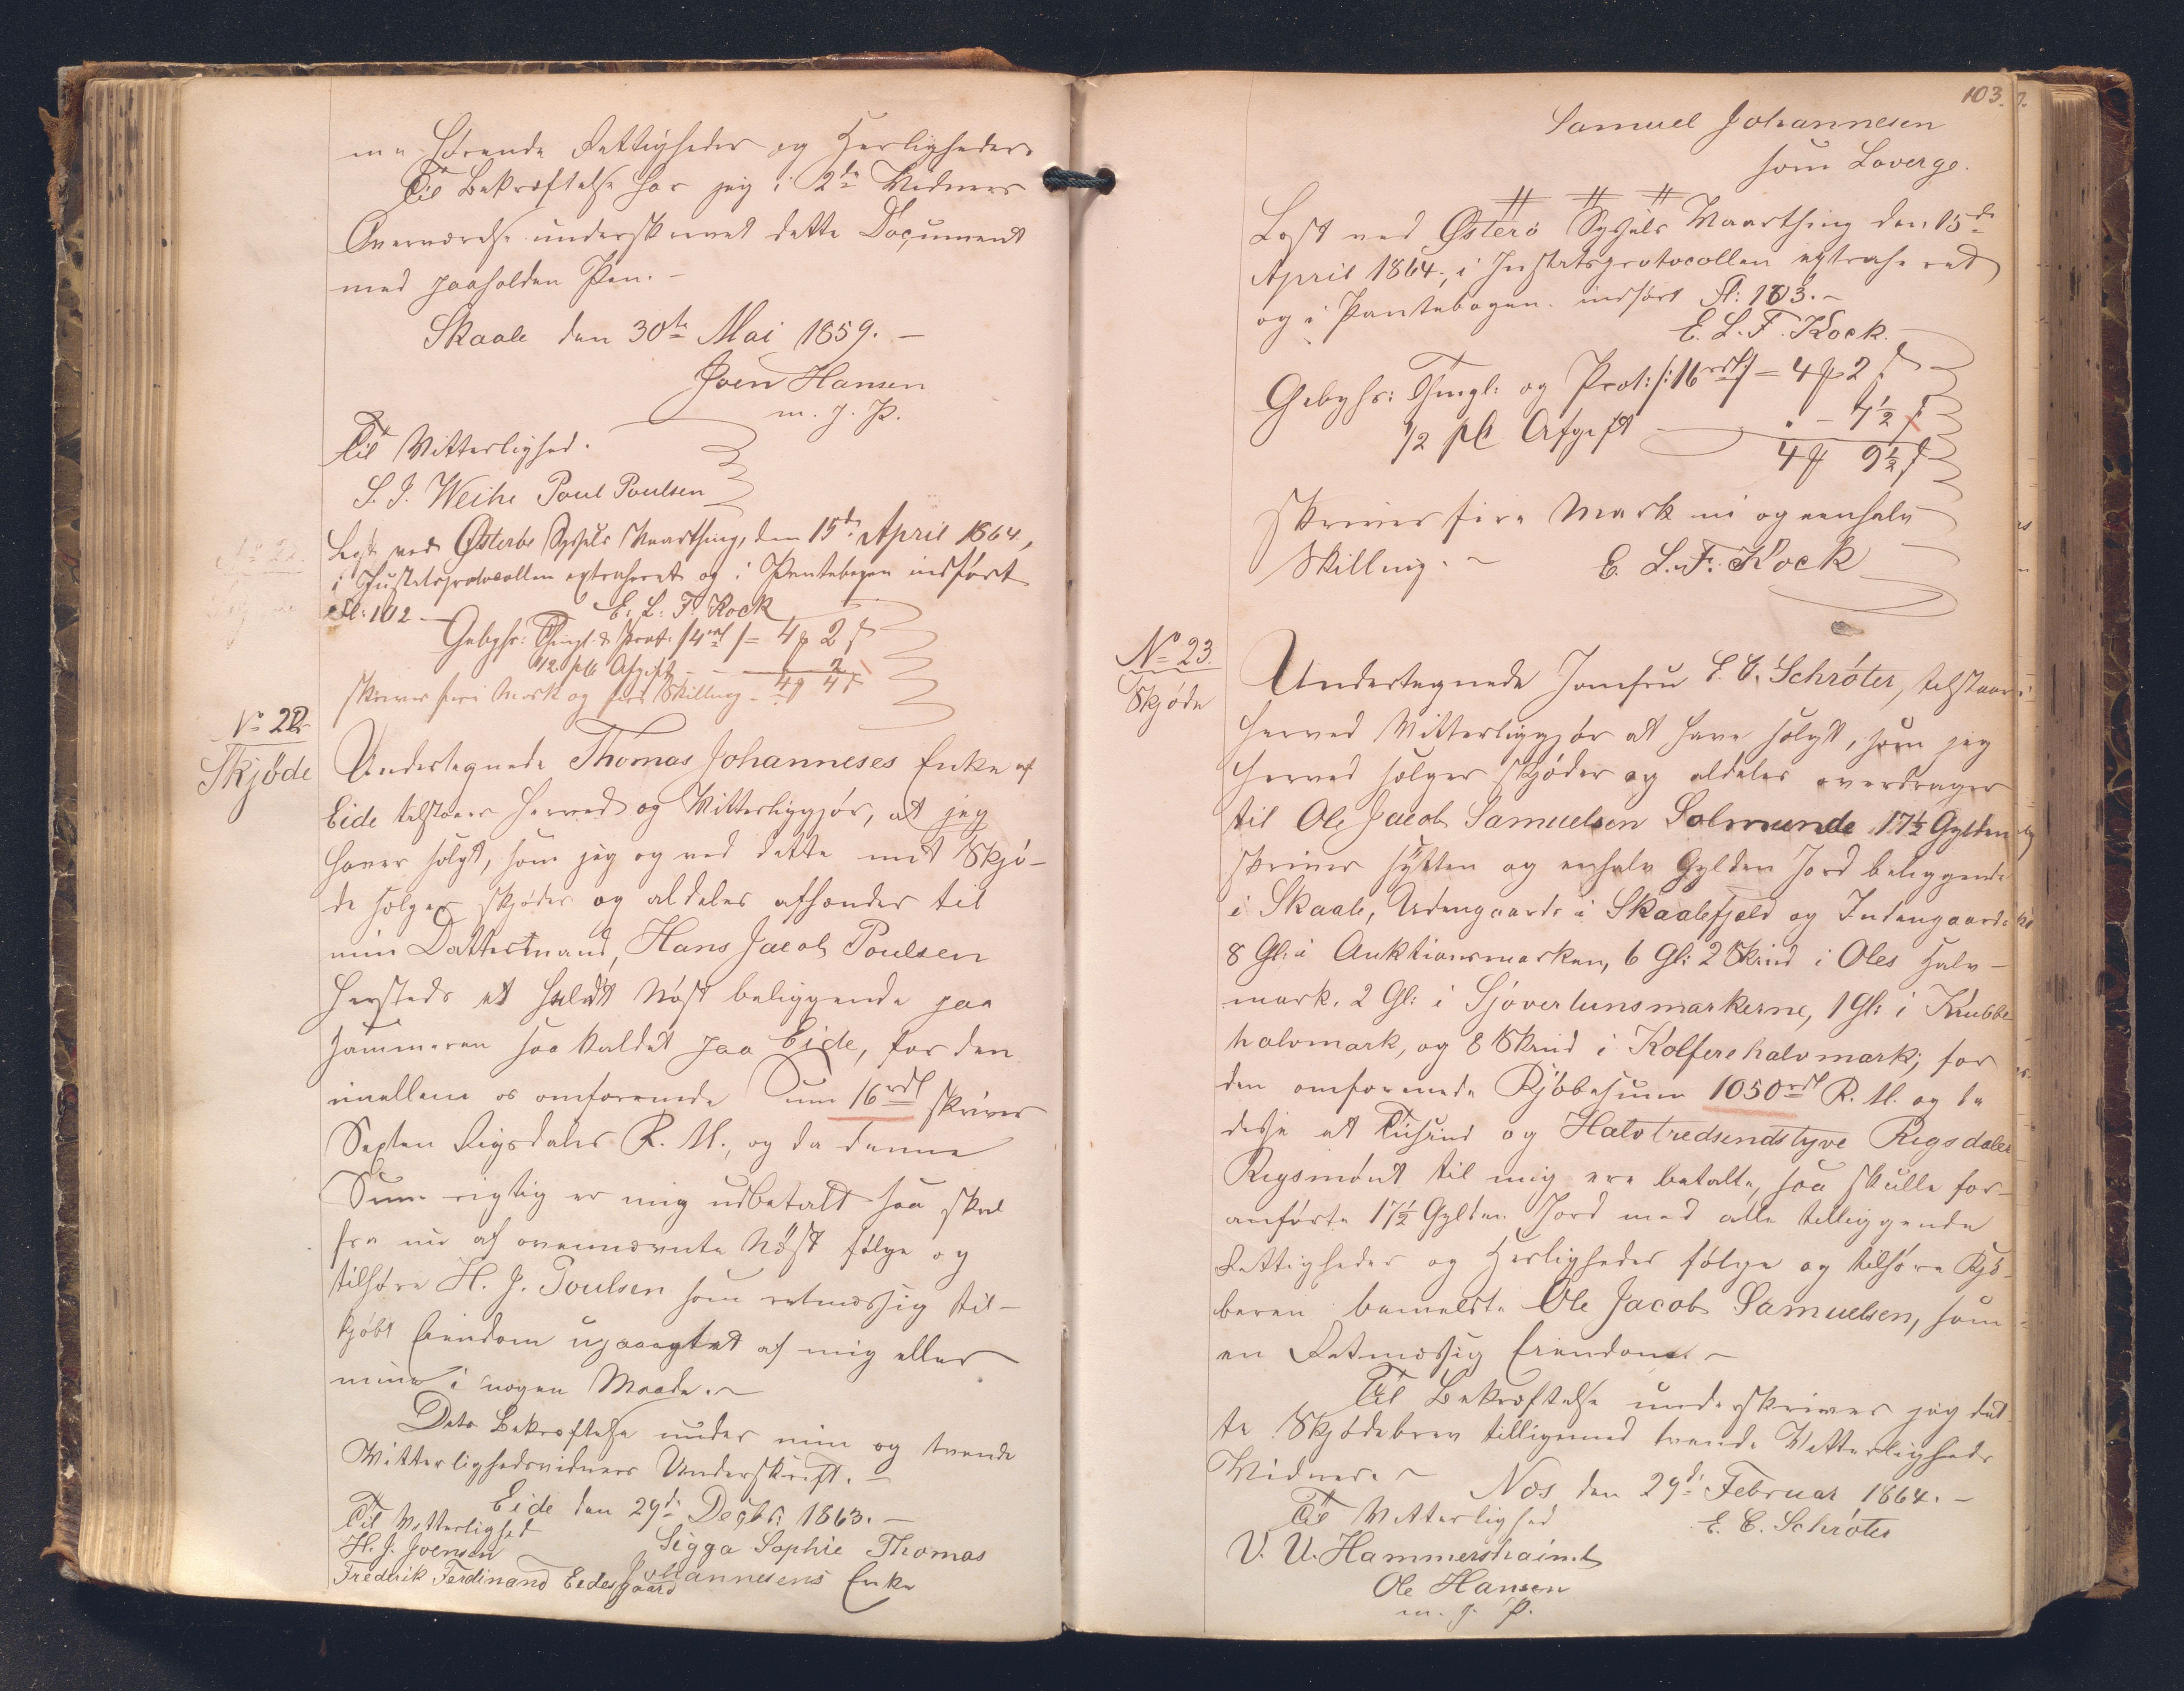 me hørende Rettigheder og Herligheder.
Til Bekræftelse har jeg i 2de Vidners
Overværelse underskrevet dette Document
med paaholden Pen. –
Skaale den 30te Mai 1859. –
Joen Hansen
m. p. P.
Til Vitterlighed.
S. J. Weihe Poul Poulsen
Læst ved Østerø Syssels Vaarthing, den 15de April 1864,
i Justitsprotocollen extraheret og i Pantebogen indført
Fl: 102 – E. L. F. Kock
Gebyhr: Thingl. & Prot: /4rd/ = 4 ₰ 2 ß
1/2 pCt Afgift – – 2
skriver fire Mark og fire Skilling – 4 ₰ 4 ß
No 22
Skjøde
Undertegnede Thomas Johanneses Enke af
Eide tilstaaer herved og Vitterliggjør, at jeg
haver solgt, som jeg og ved dette mit Skjø-
de sælger skjøder og aldeles afhænder til
min Dattermand, Hans Jacob Poulsen
hersteds et halvt Nøst beliggende paa
Hammeren saa kaldet paa Eide, for den
imellem os omforenede Sum 16rdl skriver
Sexten Rigsdaler R. M., og da denne
Sum rigtig er mig udbetalt saa skal
fra nu af ovennævnte Nøst følge og
tilhøre H. J. Poulsen som retmæssig til-
kjøbt Eiendom upaaagtet af mig eller
mine i nogen Maade. –
Dets Bekræftelse under min og tvende
Vitterlighedsvidners Underskrift. –
Eide den 29de Decbr: 1863. –
Til Vitterlighed
H. J. Joensen
Sigga Sophie Thomas
Frederik Ferdinand Eidesgaard
Johannesens Enke
103.
Samuel Johannesen
som Laverge.
Læst ved Østerø Syssels Vaarthing den 15de
April 1864, i Justitsprotocollen extraheret
og i Pantebogen indført Fl: 103. –
E. L. F. Kock.
Gebyhr: Thingl: og Prot: /:16rdl:/ = 4 ₰ 2 ß
1/2 pCt Afgift – . – 7 1/2 ß
4 ₰ 9 1/2 ß
skriver fire Mark ni og eenhalv
Skilling. – E. L. F. Kock
No 23.
Skjøde
Undertegnede Jomfru E. C. Schrøter, tilstaaer
herved Vitterliggjør at have solgt, som jeg
herved sælger skjøder og aldeles overdrager
til Ole Jacob Samuelsen Solmunde 17½ Gylden
skriver sytten og eenhalv Gylden Jord beliggende
i Skaale, Udengaards i Skaalefjeld og Indengaards
8 Gl: i Auktionsmarken, 6 Gl: 2 Skind i Oles Halv-
mark, 2 Gl: i Sjøverlunsmarkerne, 1 Gl: i Krubbe-
halvmark, og 8 Skind i Kolferehalvmark; for
den omforenede Kjøbesum 1050rdl R. M. og da
disse et Tusind og Halvtredsindstyve Rigsdaler
Rigsmønt til mig ere betalte, saa skulle for-
anførte 17½ Gylden Jord med alle tilliggende
Rettigheder og Herligheder følge og tilhøre Kjø-
beren bemeldte Ole Jacob Samuelsen, som
en Retmæssig Eiendom. –
Til Bekræftelse underskriver jeg det-
te Skjødebrev tilligemed tvende Vitterligheds
Vidner. – Næs den 29de Februar 1864. –
Til Vitterlighed
E. C. Schrøter
V. U. Hammershaimb
Ole Hansen
m. p. P.